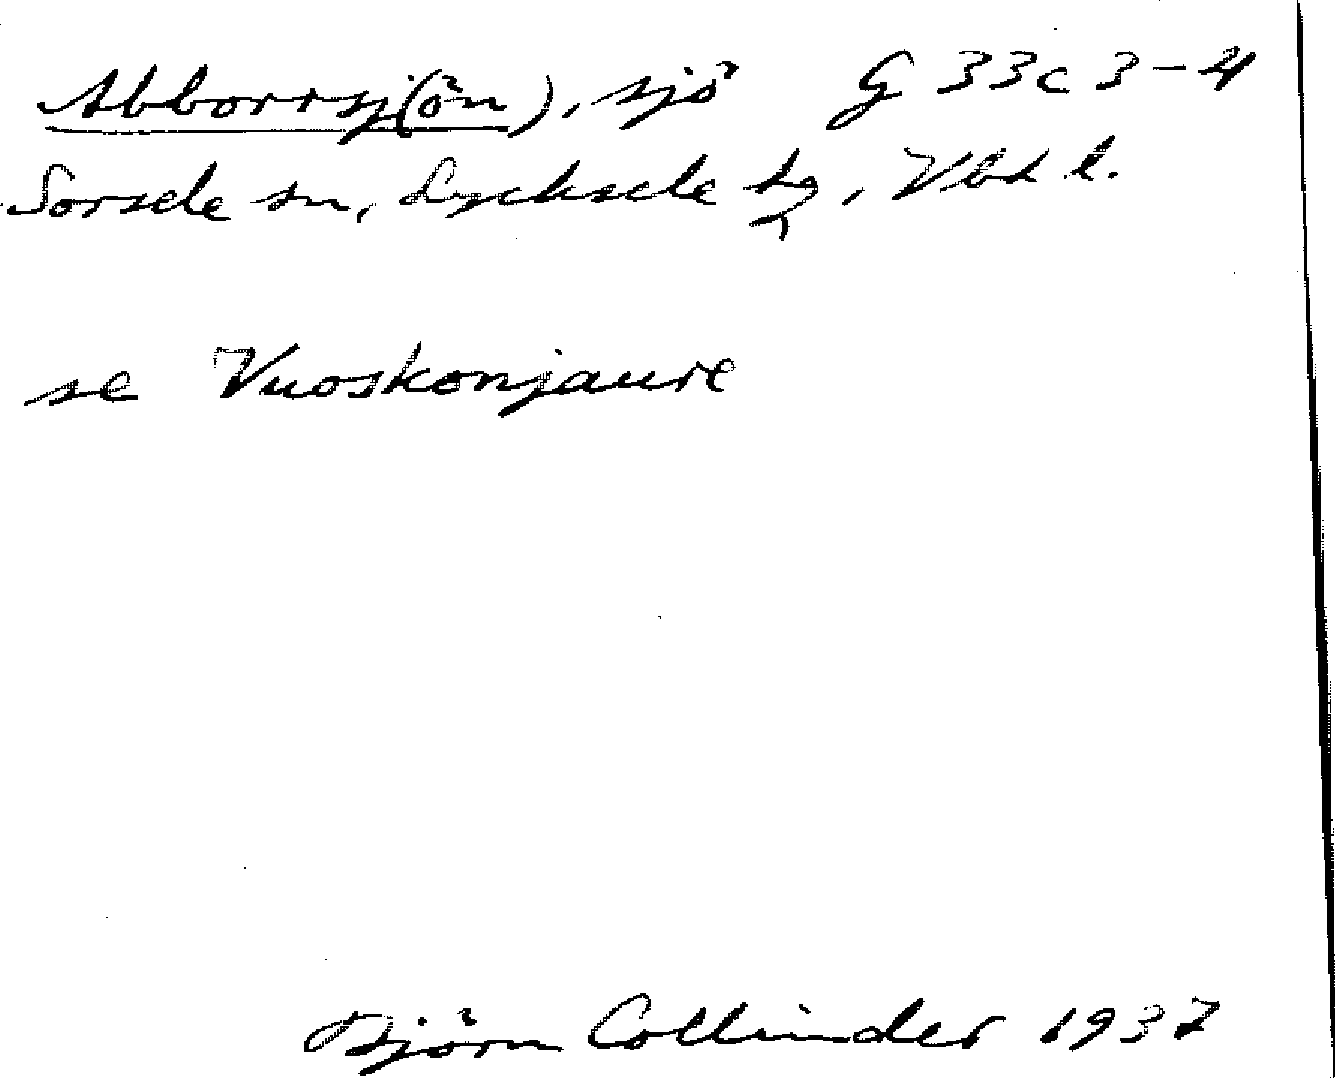 Abborrsj(ön), sjö G 33c 3-4
Sorsele sn, Lycksele tg, Vbt l.
se Vuoskonjaure
Björn Collinder 1937